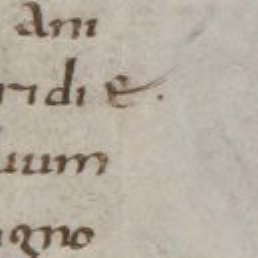 am
ridi e.
uum
igno